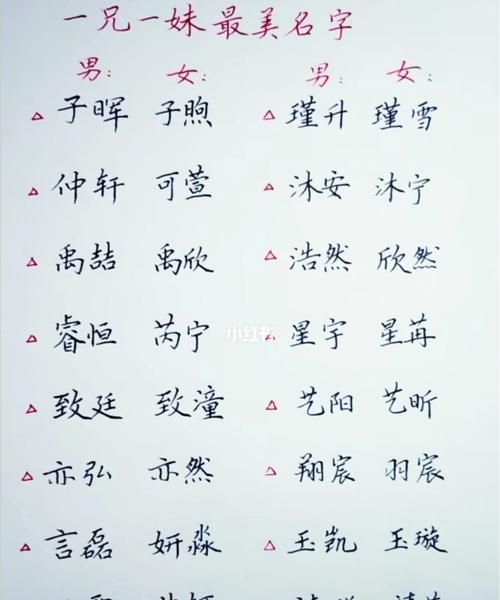 一兄一妹最美名字
男: 女: 男: 女:
△ 子晖 子煦 △ 瑾升 瑾雪
△ 仲轩 可萱 △ 沐安 沐宁
△ 禹喆 禹欣 △ 浩然 欣然
△ 睿恒 芮宁 小红书 △ 星宇 星苒
△ 致廷 致潼 △ 艺阳 艺昕
△ 亦弘 亦然 △ 翔宸 羽宸
△ 言磊 妍淼 △ 玉凯 玉璇